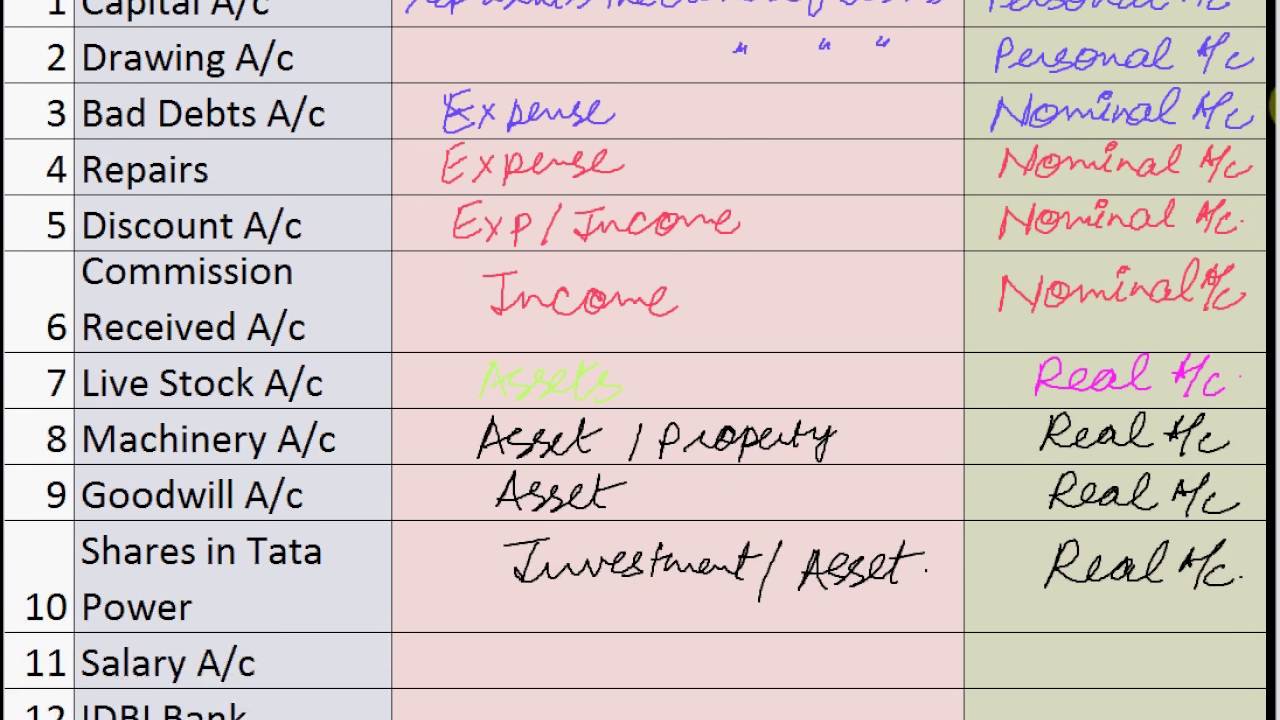 1 Capital A/c Personal A/c
2 Drawing A/c " " " Personal A/c
3 Bad Debts A/c Expense Nominal A/c
4 Repairs Expense Nominal A/c
5 Discount A/c Exp/Income Nominal A/c.
Commission
6 Received A/c Income Nominal A/c
7 Live Stock A/c Assets Real A/c.
8 Machinery A/c Asset / Property Real A/c
9 Goodwill A/c Asset Real A/c
Shares in Tata
10 Power Investment/ Asset. Real A/c.
11 Salary A/c
12 IDBI Bank